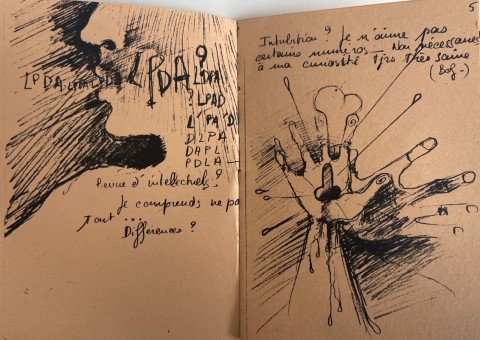 ?
LPDA LPDA LPDA LPDA LDPA
? LPAD
L PA D
DLPA
DAPL
PDLA
Revue d'intellectuels ?
Je comprends ne pa
Tout ...
Differences ?
5
Intubition ? Je n'aime pas
certains numéros — Non nécessaires
à ma curiosité tjrs très saine
(Bof -)